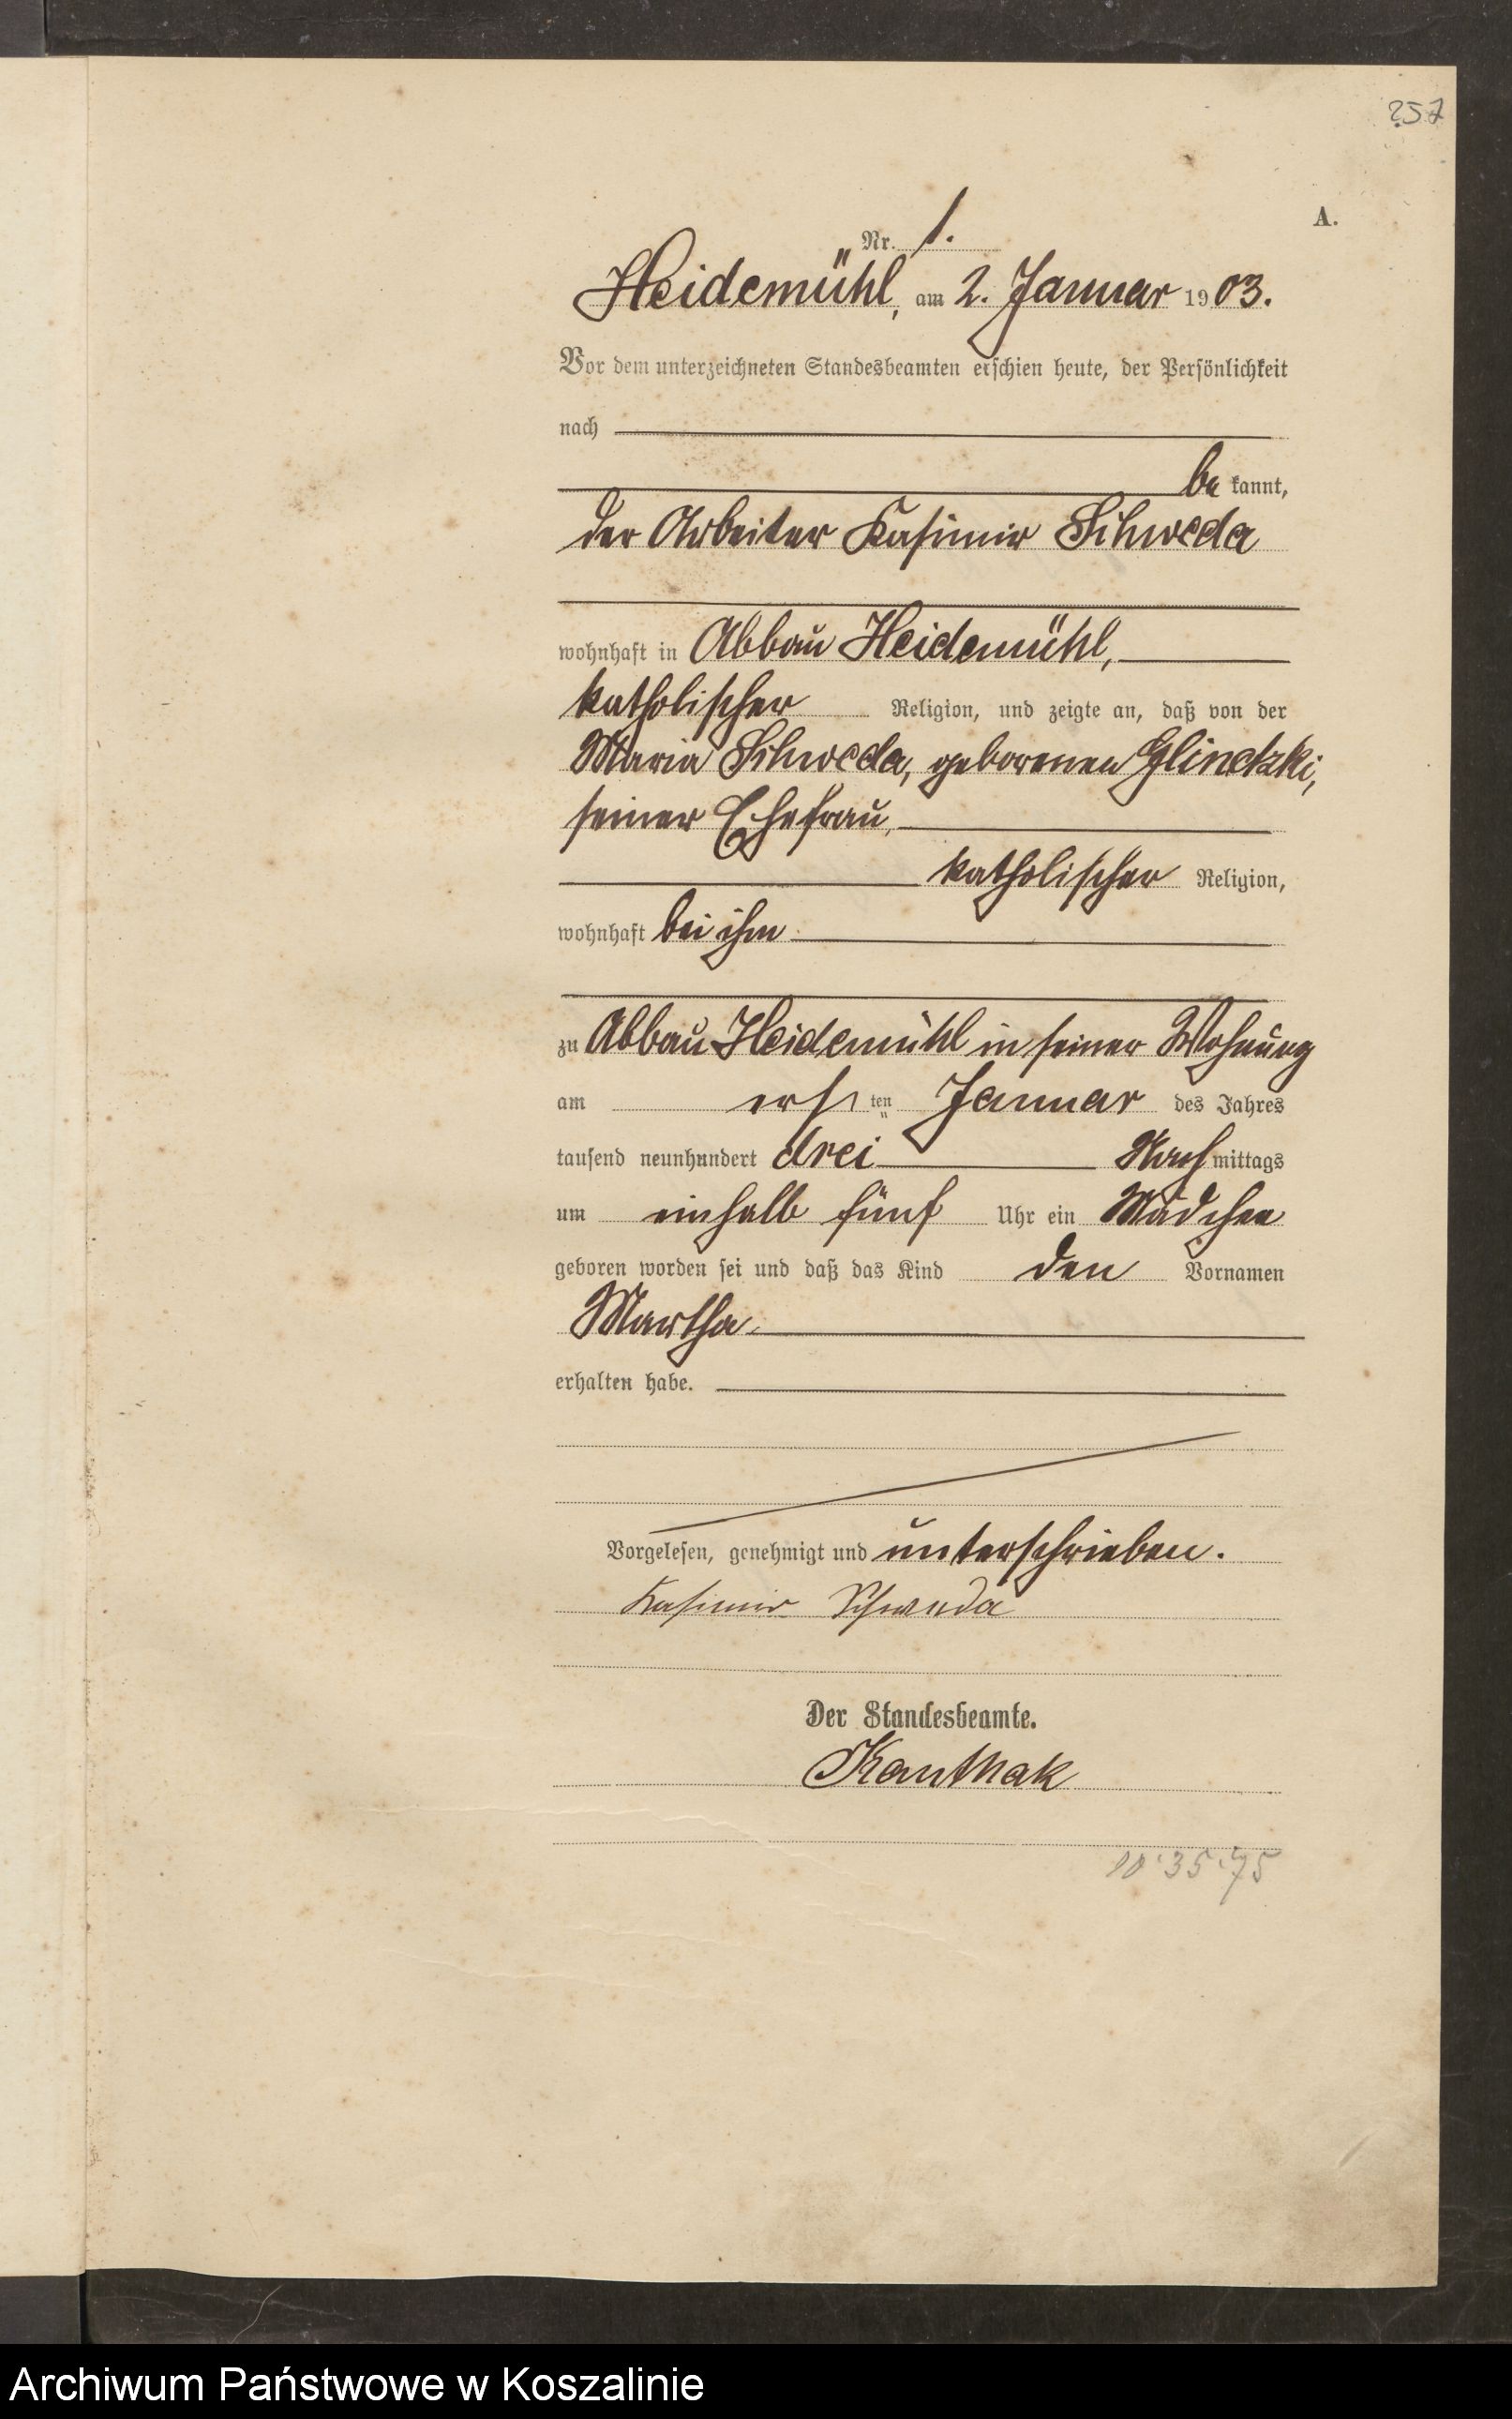 257
A.
Nr. 1.
Heidemühl, am 2. Januar 1903.
Vor dem unterzeichneten Standesbeamten erschien heute, der Persönlichkeit
nach
be kannt,
der Arbeiter Kasimir Schweda
wohnhaft in Abbau Heidemühl,
katholischer Religion, und zeigte an, daß von der
Maria Schweda, geborenen
seiner Ehefrau,
katholischer Religion,
wohnhaft bei ihm
zu Abbau Heidemühl in seiner Wohnung
am ersten Januar des Jahres
tausend neunhundert drei Nachmittags
um einhalb fünf Uhr ein Mädchen
geboren worden sei und daß das Kind den Vornamen
Martha
erhalten habe.
Vorgelesen, genehmigt und unterschrieben.
Kasimir Schweda
Der Standesbeamte.
Kauthak
Archiwum Państwowe w Koszalinie